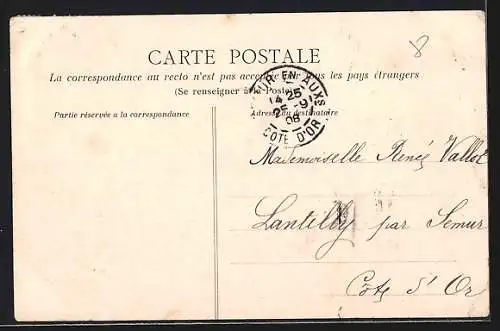 8
CARTE POSTALE
La correspondance au recto n'est pas acceptée par tous les pays étrangers
(Se renseigner à la Poste)
UR EN AUXS
14 25
25 -9
08
COTE D'OR
Partie réservée a la correspondance
Adresse du destinataire
Mademoiselle Renée Vallot
Lantilly par Semur
Côte d'Or